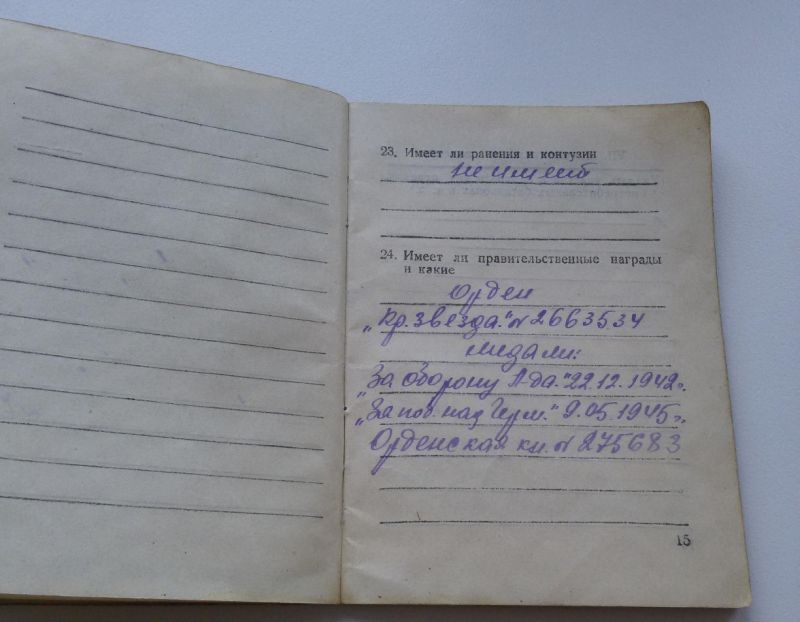 23. Имеет ли ранения и контузии
не имеет
24. Имеет ли правительственные награды
и какие
Орден
„Кр. звезда." № 2663534
медали:
„За оборону Л-да." 22.12.1942г.
„За поб. над Герм." 9.05.1945г.
Орденская кн. № 275683
15